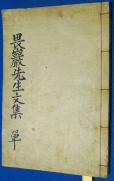 畏巖先生文集 單